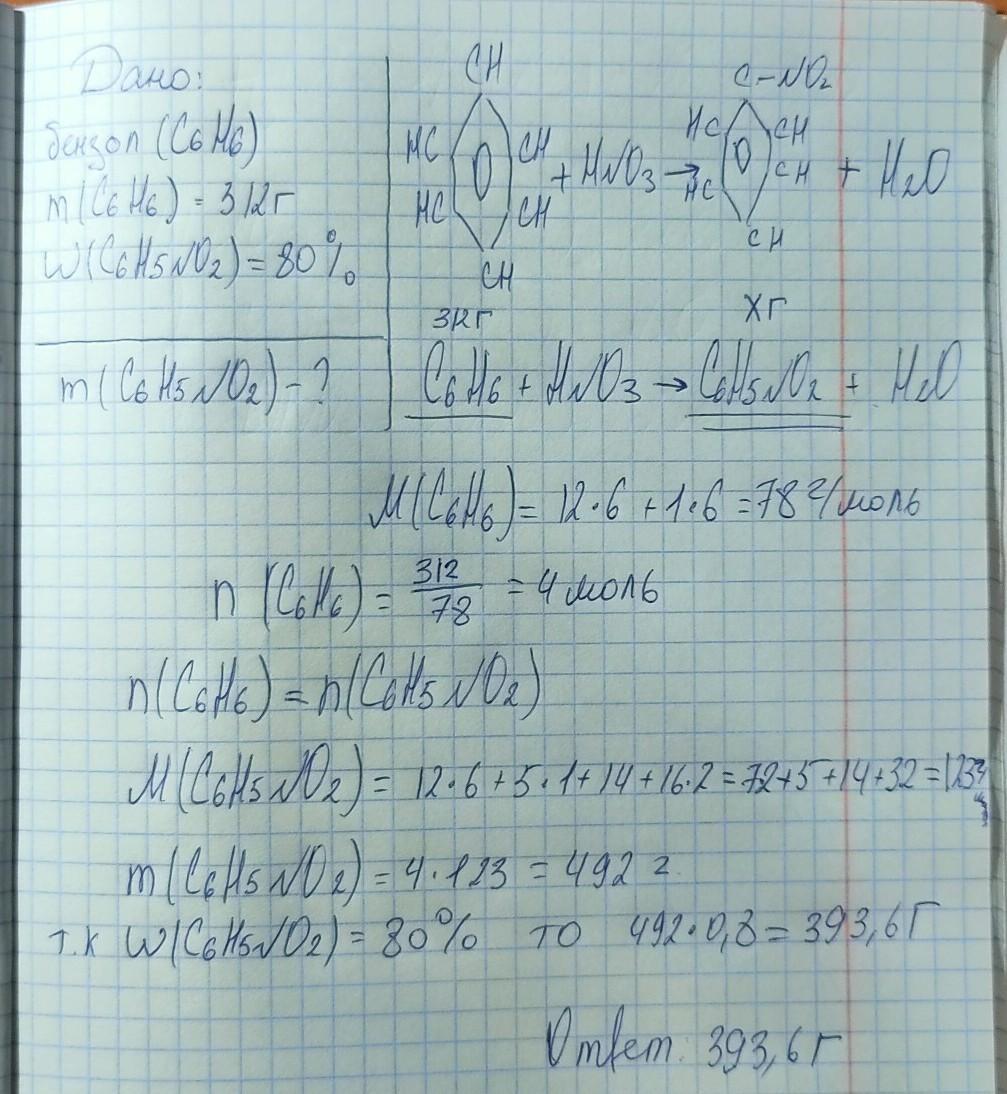 Дано:
бензол (C6H6)
m(C6H6) = 312г
W(C6H5NO2) = 80%
m(C6H5NO2) - ?
CH
HC CH
HC CH
CH
+ HNO3 →
C-NO2
HC CH
HC CH
CH
+ H2O
312г xг
C6H6 + HNO3 → C6H5NO2 + H2O
M(C6H6) = 12·6 + 1·6 = 78г/моль
n(C6H6) = 312/78 = 4 моль
n(C6H6) = n(C6H5NO2)
M(C6H5NO2) = 12·6 + 5·1 + 14 + 16·2 = 72+5+14+32 = 123
m(C6H5NO2) = 4·123 = 492 г.
т.к W(C6H5NO2) = 80% то 492·0,8 = 393,6г
Ответ: 393,6г